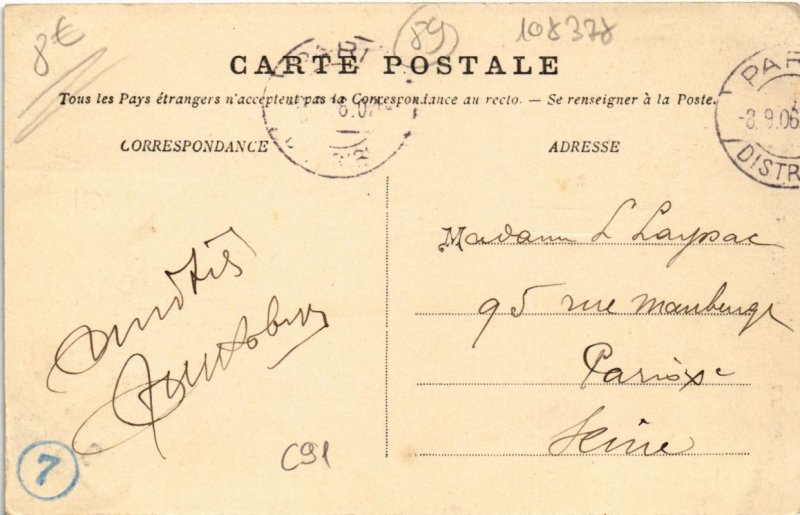 8€
89
108378
CARTE POSTALE
Tous les Pays étrangers n'acceptent pas la Correspondance au recto. — Se renseigner à la Poste.
PAR
-8.9.06
DISTR
CORRESPONDANCE
ADRESSE
Madame L Layssac
95 rue Maubeuge
Paris Xe
Seine
C91
7